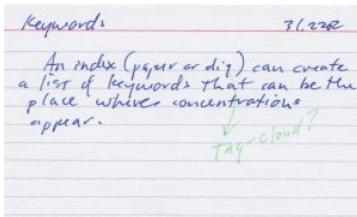 Keywords 31.2202
An index (paper or dig) can create
a list of keywords that can be the
place where concentrations
appear.
Tag-cloud?